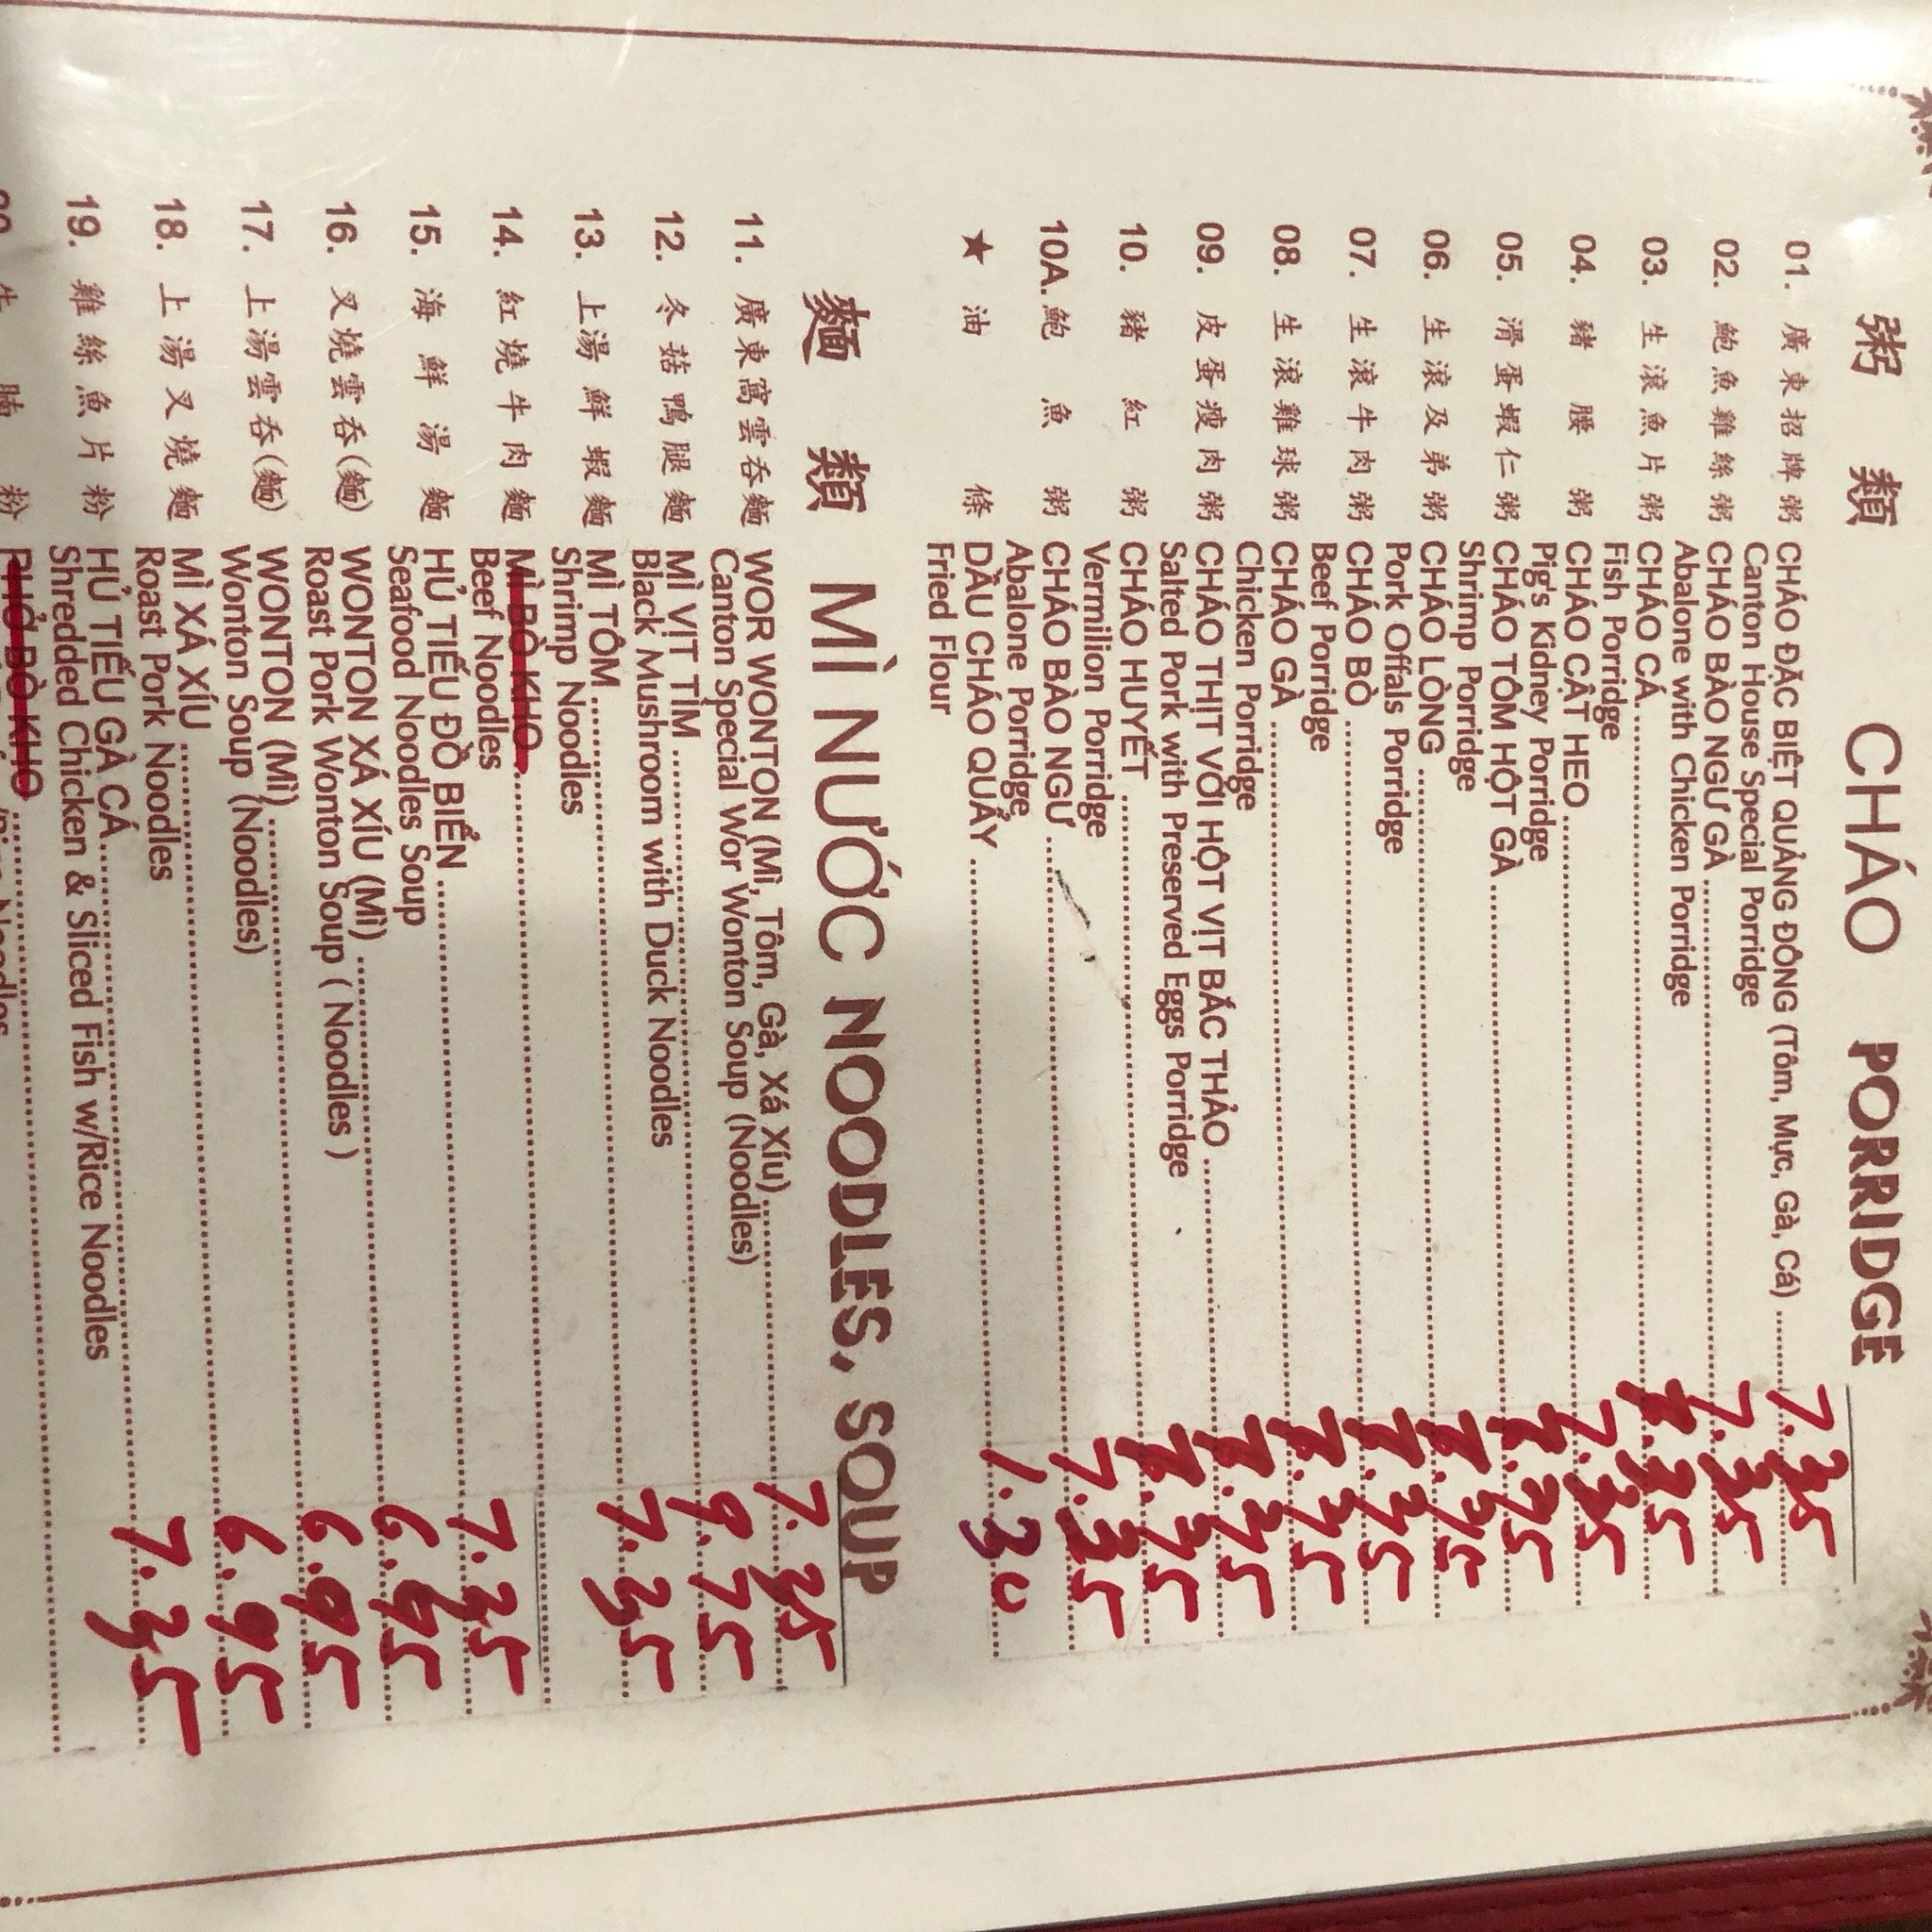 粥 類 CHÁO PORRIDGE
01. 廣東招牌粥 CHÁO ĐẶC BIỆT QUẢNG ĐÔNG (Tôm, Mực, Gà, Cá) 7.35
Canton House Special Porridge
02. 鮑魚雞絲粥 CHÁO BÀO NGƯ GÀ 7.35
Abalone with Chicken Porridge
03. 生滾魚片粥 CHÁO CÁ 7.35
Fish Porridge
04. 豬腰粥 CHÁO CẬT HEO 7.35
Pig's Kidney Porridge
05. 滑蛋蝦仁粥 CHÁO TÔM HỘT GÀ 7.35
Shrimp Porridge
06. 生滾及弟粥 CHÁO LÒNG 7.35
Pork Offals Porridge
07. 生滾牛肉粥 CHÁO BÒ 7.35
Beef Porridge
08. 生滾雞球粥 CHÁO GÀ 7.35
Chicken Porridge
09. 皮蛋瘦肉粥 CHÁO THỊT VỚI HỘT VỊT BÁC THẢO 7.35
Salted Pork with Preserved Eggs Porridge
10. 豬紅粥 CHÁO HUYẾT 7.35
Vermilion Porridge
10A. 鮑魚粥 CHÁO BÀO NGƯ 7.35
Abalone Porridge
★ 油條 DẦU CHÁO QUẨY 1.30
Fried Flour
麵 類 MÌ NƯỚC NOODLES, SOUP
11. 廣東窩雲吞麵 WOR WONTON (Mì, Tôm, Gà, Xá Xíu) 7.35
Canton Special Wor Wonton Soup (Noodles)
12. 冬菇鴨腿麵 MÌ VỊT TÌM 8.75
Black Mushroom with Duck Noodles
13. 上湯鮮蝦麵 MÌ TÔM 7.35
Shrimp Noodles
14. 紅燒牛肉麵 MÌ BÒ KHO
Beef Noodles
15. 海鮮湯麵 HỦ TIẾU ĐỒ BIỂN 7.35
Seafood Noodles Soup
16. 叉燒雲吞(麵) WONTON XÁ XÍU (Mì) 6.95
Roast Pork Wonton Soup ( Noodles )
17. 上湯雲吞(麵) WONTON (Mì) 6.95
Wonton Soup (Noodles)
18. 上湯叉燒麵 MÌ XÁ XÍU 6.95
Roast Pork Noodles
19. 雞絲魚片粉 HỦ TIẾU GÀ CÁ 7.35
Shredded Chicken & Sliced Fish w/Rice Noodles
牛腩粉 PHỞ BÒ KHO